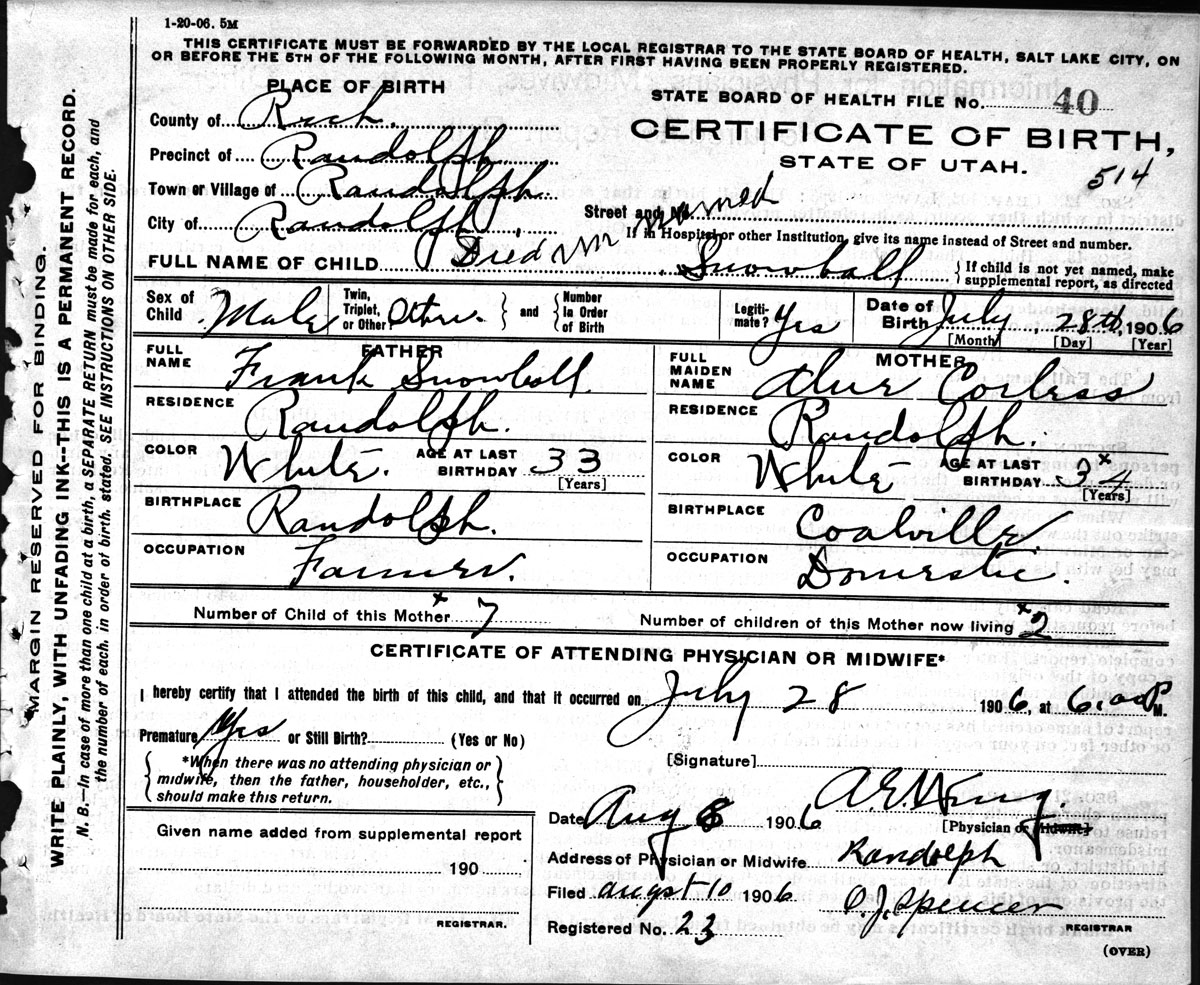 1-20-06. 5M
THIS CERTIFICATE MUST BE FORWARDED BY THE LOCAL REGISTRAR TO THE STATE BOARD OF HEALTH, SALT LAKE CITY, ON
OR BEFORE THE 5TH OF THE FOLLOWING MONTH, AFTER FIRST HAVING BEEN PROPERLY REGISTERED.
PLACE OF BIRTH
STATE BOARD OF HEALTH FILE No. 40
County of Rich.
CERTIFICATE OF BIRTH,
Precinct of Randolph
STATE OF UTAH.
514
Town or Village of Randolph
City of Randolph
Street and No.
If in Hospital or other Institution, give its name instead of Street and number.
FULL NAME OF CHILD Died Unnamed Snowball
{ If child is not yet named, make
supplemental report, as directed
Sex of Child Male
Twin, Triplet, or Other? Other. } and { Number In Order of Birth
Legiti-mate? Yes
Date of Birth July 28th, 1906
[Month] [Day] [Year]
FATHER
FULL NAME Frank Snowball
RESIDENCE Randolph.
COLOR White. AGE AT LAST BIRTHDAY 33
[Years]
BIRTHPLACE Randolph.
OCCUPATION Farmer.
MOTHER
FULL MAIDEN NAME Corless
RESIDENCE Randolph.
COLOR White AGE AT LAST BIRTHDAY 34 x
[Years]
BIRTHPLACE Coalville
OCCUPATION Domestic.
Number of Child of this Mother x 7
Number of children of this Mother now living x 2
CERTIFICATE OF ATTENDING PHYSICIAN OR MIDWIFE*
I hereby certify that I attended the birth of this child, and that it occurred on July 28 1906, at 6.00 P M.
Premature Yes or Still Birth? (Yes or No)
{ *When there was no attending physician or
midwife, then the father, householder, etc.,
should make this return. }
[Signature]
A.E.
Date Aug 8 1906
[Physician or Midwife]
Given name added from supplemental report
190
REGISTRAR.
Address of Physician or Midwife Randolph
Filed Augst 10 1906 O.J. Spencer
Registered No. 23
REGISTRAR
(OVER)
MARGIN RESERVED FOR BINDING.
WRITE PLAINLY, WITH UNFADING INK--THIS IS A PERMANENT RECORD.
N. B.—In case of more than one child at a birth, a SEPARATE RETURN must be made for each, and
the number of each, in order of birth, stated. SEE INSTRUCTIONS ON OTHER SIDE.